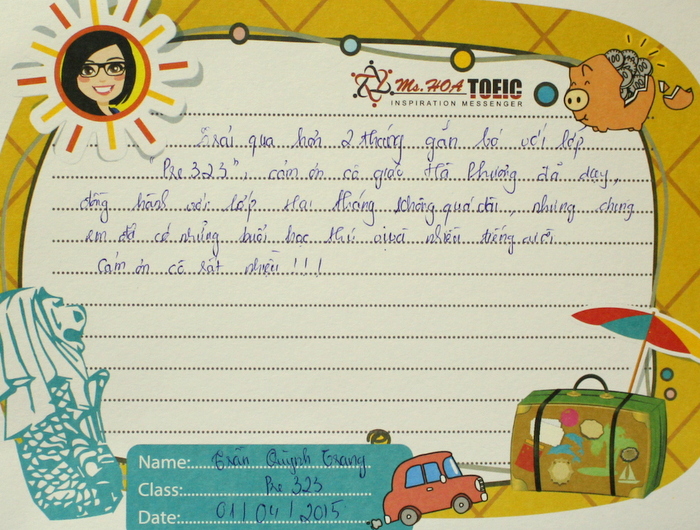 Ms. HOA TOEIC
INSPIRATION MESSENGER
Trải qua hơn 2 tháng gắn bó với lớp
"Pre 323", cám ơn cô giáo Hà Phương đã dạy,
đồng hành với lớp. Hai tháng không quá dài, nhưng chúng
em đã có những buổi học thú vị và nhiều tiếng cười.
Cám ơn cô rất nhiều!!!
Name: Trần Quỳnh Trang
Class: Pre 323
Date: 01/04/2015